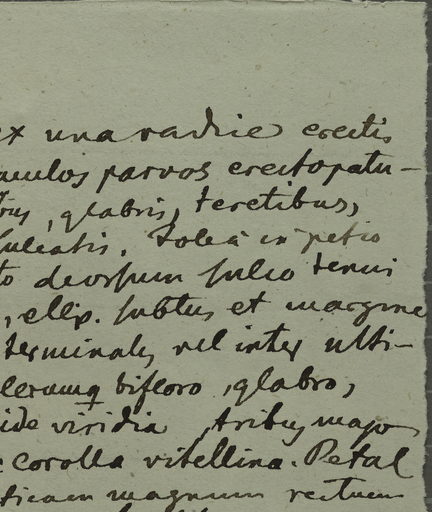 ex una radice erectis
aculos parvos erectopatu-
glabris, teretibus,
sulcatis. Folia in petio
to deorsum sulco tenui
, ellip. subtus et margine
terminales vel inter ulti-
lerumq bifloro, glabro,
ide viridia, tribus majo
corolla vitellina. Petal
ticam magnum rectum